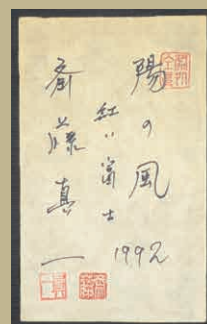 陽の風
紅い富士
1992
斎藤真一